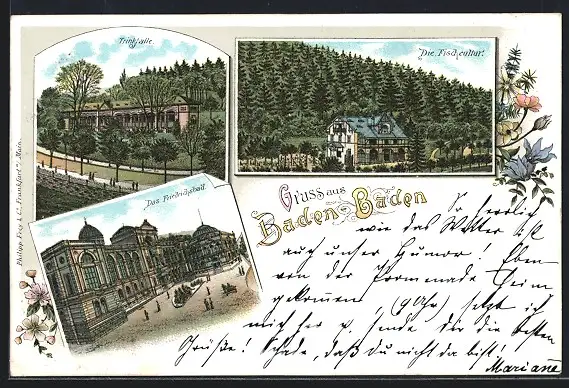 Trinkhalle
Die Fischcultur.
Das Friedrichsbad.
Philipp Frey & C°, Frankfurt a/Main.
Gruss aus
Baden-Baden
So herrlich
wie das Wetter ist
auch unser Humor! Eben
von der Promenade heim
gekommen (9 Uhr) setzt ich
mich her u. sende dir die besten
Grüße! Schade, daß du nicht da bist!
Mariane